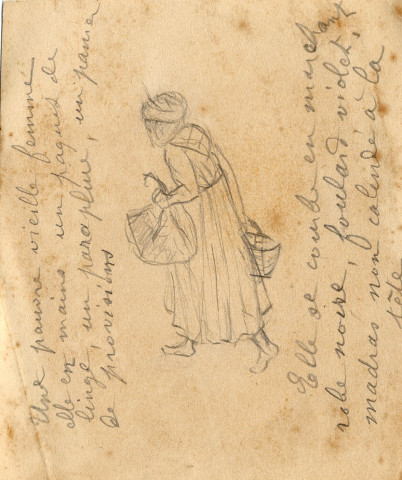 Une pauvre vieille femme
elle en mains un paquet de
linge, un parapluie, un panier
de provisions
Elle se courbe en marchant
robe noire, foulard violet,
madras non calendé à la
tête